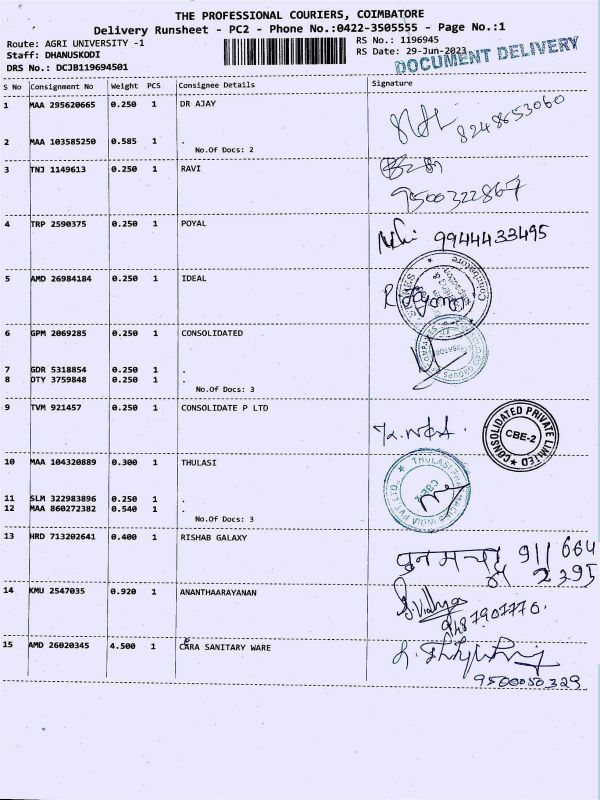 THE PROFESSIONAL COURIERS, COIMBATORE
Delivery Runsheet - PC2 - Phone No.:0422-3505555 - Page No.:1
Route: AGRI UNIVERSITY -1 RS No.: 1196945
Staff: DHANUSKODI RS Date: 29-Jun-2023
DRS No.: DCJB119694501 DOCUMENT DELIVERY
S No Consignment No Weight PCS Consignee Details Signature
1 MAA 295620665 0.250 1 DR AJAY
8248653060
2 MAA 103585250 0.585 1 .
No.Of Docs: 2
3 TNJ 1149613 0.250 1 RAVI
9500322867
4 TRP 2590375 0.250 1 POYAL
9944433495
5 AMD 26984184 0.250 1 IDEAL
Coimbatore
6 GPM 2069285 0.250 1 CONSOLIDATED
7 GDR 5318854 0.250 1 .
8 DTY 3759848 0.250 1 .
No.Of Docs: 3
9 TVM 921457 0.250 1 CONSOLIDATE P LTD
CONSOLIDATED PRIVATE LIMITED
CBE-2
10 MAA 104320889 0.300 1 THULASI
11 SLM 322983896 0.250 1 .
12 MAA 860272382 0.540 1 .
No.Of Docs: 3
13 HRD 713202641 0.400 1 RISHAB GALAXY
911 664
2395
14 KMU 2547035 0.920 1 ANANTHAARAYANAN
S.Vidhya
15 AMD 26020345 4.500 1 CARA SANITARY WARE
9500050329